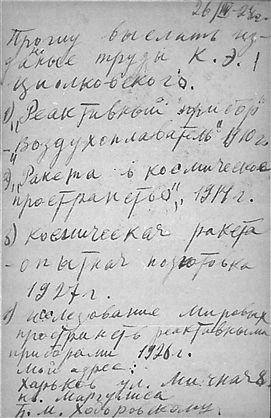 Прошу выслать из-
данные труды К. Э.
Циолковского.
1) „Реактивный прибор"
- „воздухоплаватель" 1910г.
2) „Ракета в космическое
пространство", 1914г.
3) космическая ракета
- опытная подготовка
1927г.
4) исследование мировых
пространств реактивными
приборами 1926г.
Мой адрес:
Харьков ул.
кв. Маргулиса